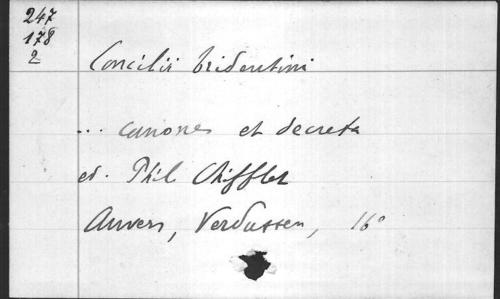 247
178
2
Concilii tridentini
... canones et decreta
ed. Phil Chifflet
Anvers, Verdussen, 16°